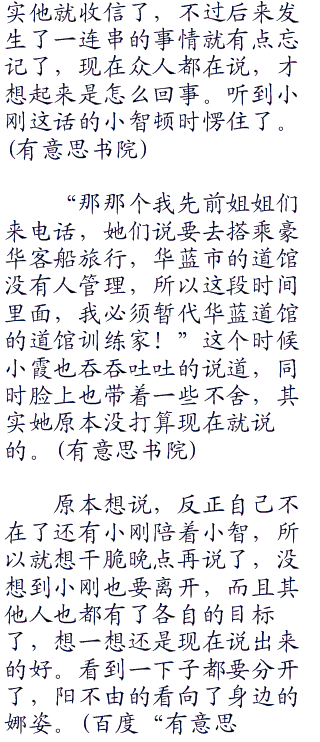 实他就收信了，不过后来发
生了一连串的事情就有点忘
记了，现在众人都在说，才
想起来是怎么回事。听到小
刚这话的小智顿时愣住了。
(有意思书院)
“那那个我先前姐姐们
来电话，她们说要去搭乘豪
华客船旅行，华蓝市的道馆
没有人管理，所以这段时间
里面，我必须暂代华蓝道馆
的道馆训练家！”这个时候
小霞也吞吞吐吐的说道，同
时脸上也带着一些不舍，其
实她原本没打算现在就说
的。(有意思书院)
原本想说，反正自己不
在了还有小刚陪着小智，所
以就想干脆晚点再说了，没
想到小刚也要离开，而且其
他人也都有了各自的目标
了，想一想还是现在说出来
的好。看到一下子都要分开
了，阳不由的看向了身边的
娜姿。(百度“有意思